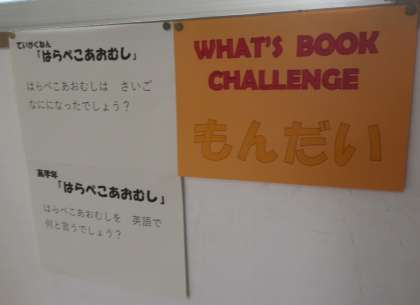 ていがくねん
「はらぺこあおむし」
はらぺこあおむしは　さいご
なにになったでしょう？
高学年
「はらぺこあおむし」
はらぺこあおむしを　英語で
何と言うでしょう？
WHAT'S BOOK
CHALLENGE
もんだい